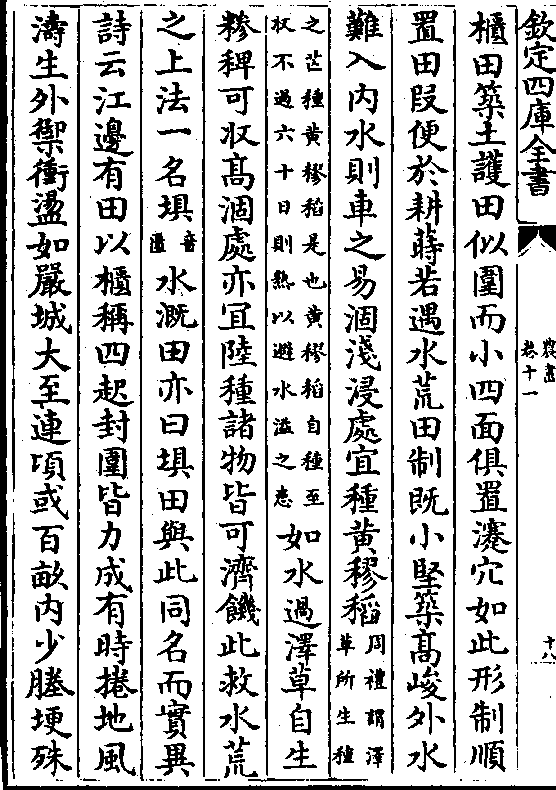 欽定四庫全書
農書
卷十一
十八
櫃田築土護田似圍而小四面俱置瀽穴如此形制順
置田段便於耕蒔若遇水荒田制既小堅築高峻外水
難入内水則車之易涸淺浸處宜種黄穋稻周禮謂澤
草所生種
之芒種黄穋稻是也黄穋稻自種至
收不過六十日則熟以避水溢之患如水過澤草自生
糝稗可收高涸處亦宜陸種諸物皆可濟饑此救水荒
之上法一名埧音
濫水溉田亦曰埧田與此同名而實異
詩云江邊有田以櫃稱四起封圍皆力成有時捲地風
濤生外禦衝盪如嚴城大至連頃或百畝内少塍埂殊